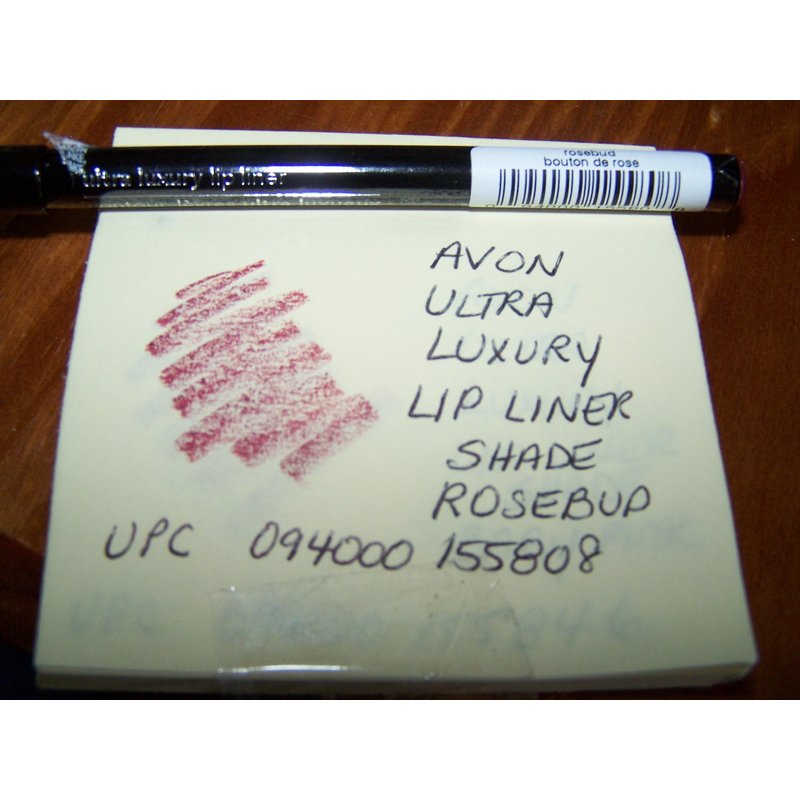 rosebud
bouton de rose
ultra luxury lip liner
AVON
ULTRA
LUXURY
LIP LINER
SHADE
ROSEBUD
UPC 094000 155808